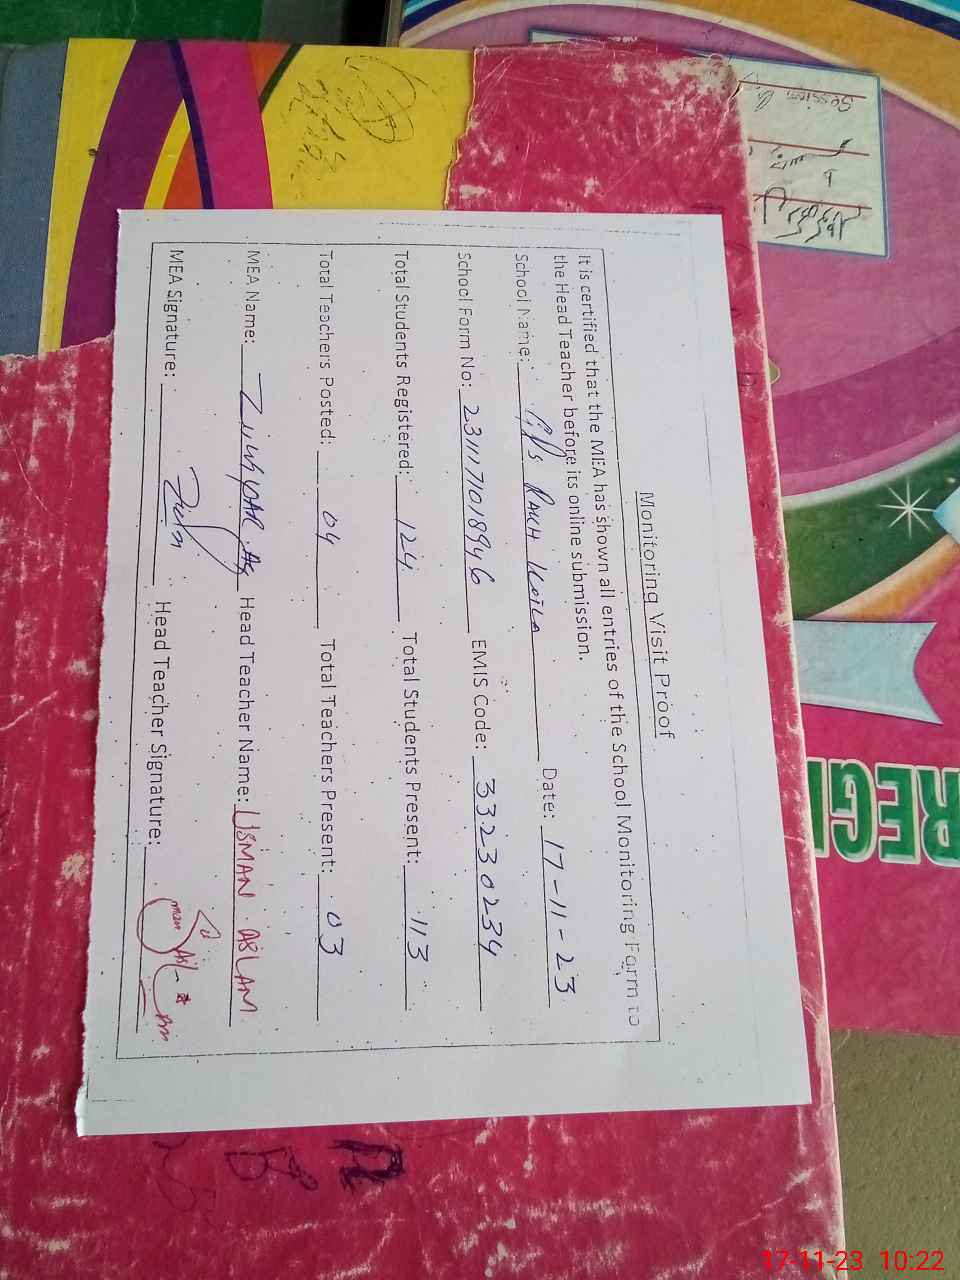 Monitoring Visit Proof
It is certified that the MEA has shown all entries of the School Monitoring Form to
the Head Teacher before its online submission.
School Name: GPS RAKH KOILA Date: 17-11-23
School Form No: EMIS Code: 33230234
Total Students Registered: 124 Total Students Present: 113
Total Teachers Posted: 04 Total Teachers Present: 03
MEA Name: Head Teacher Name: USMAN ASLAM
MEA Signature: Head Teacher Signature:
Session
REGI
17-11-23 10:22